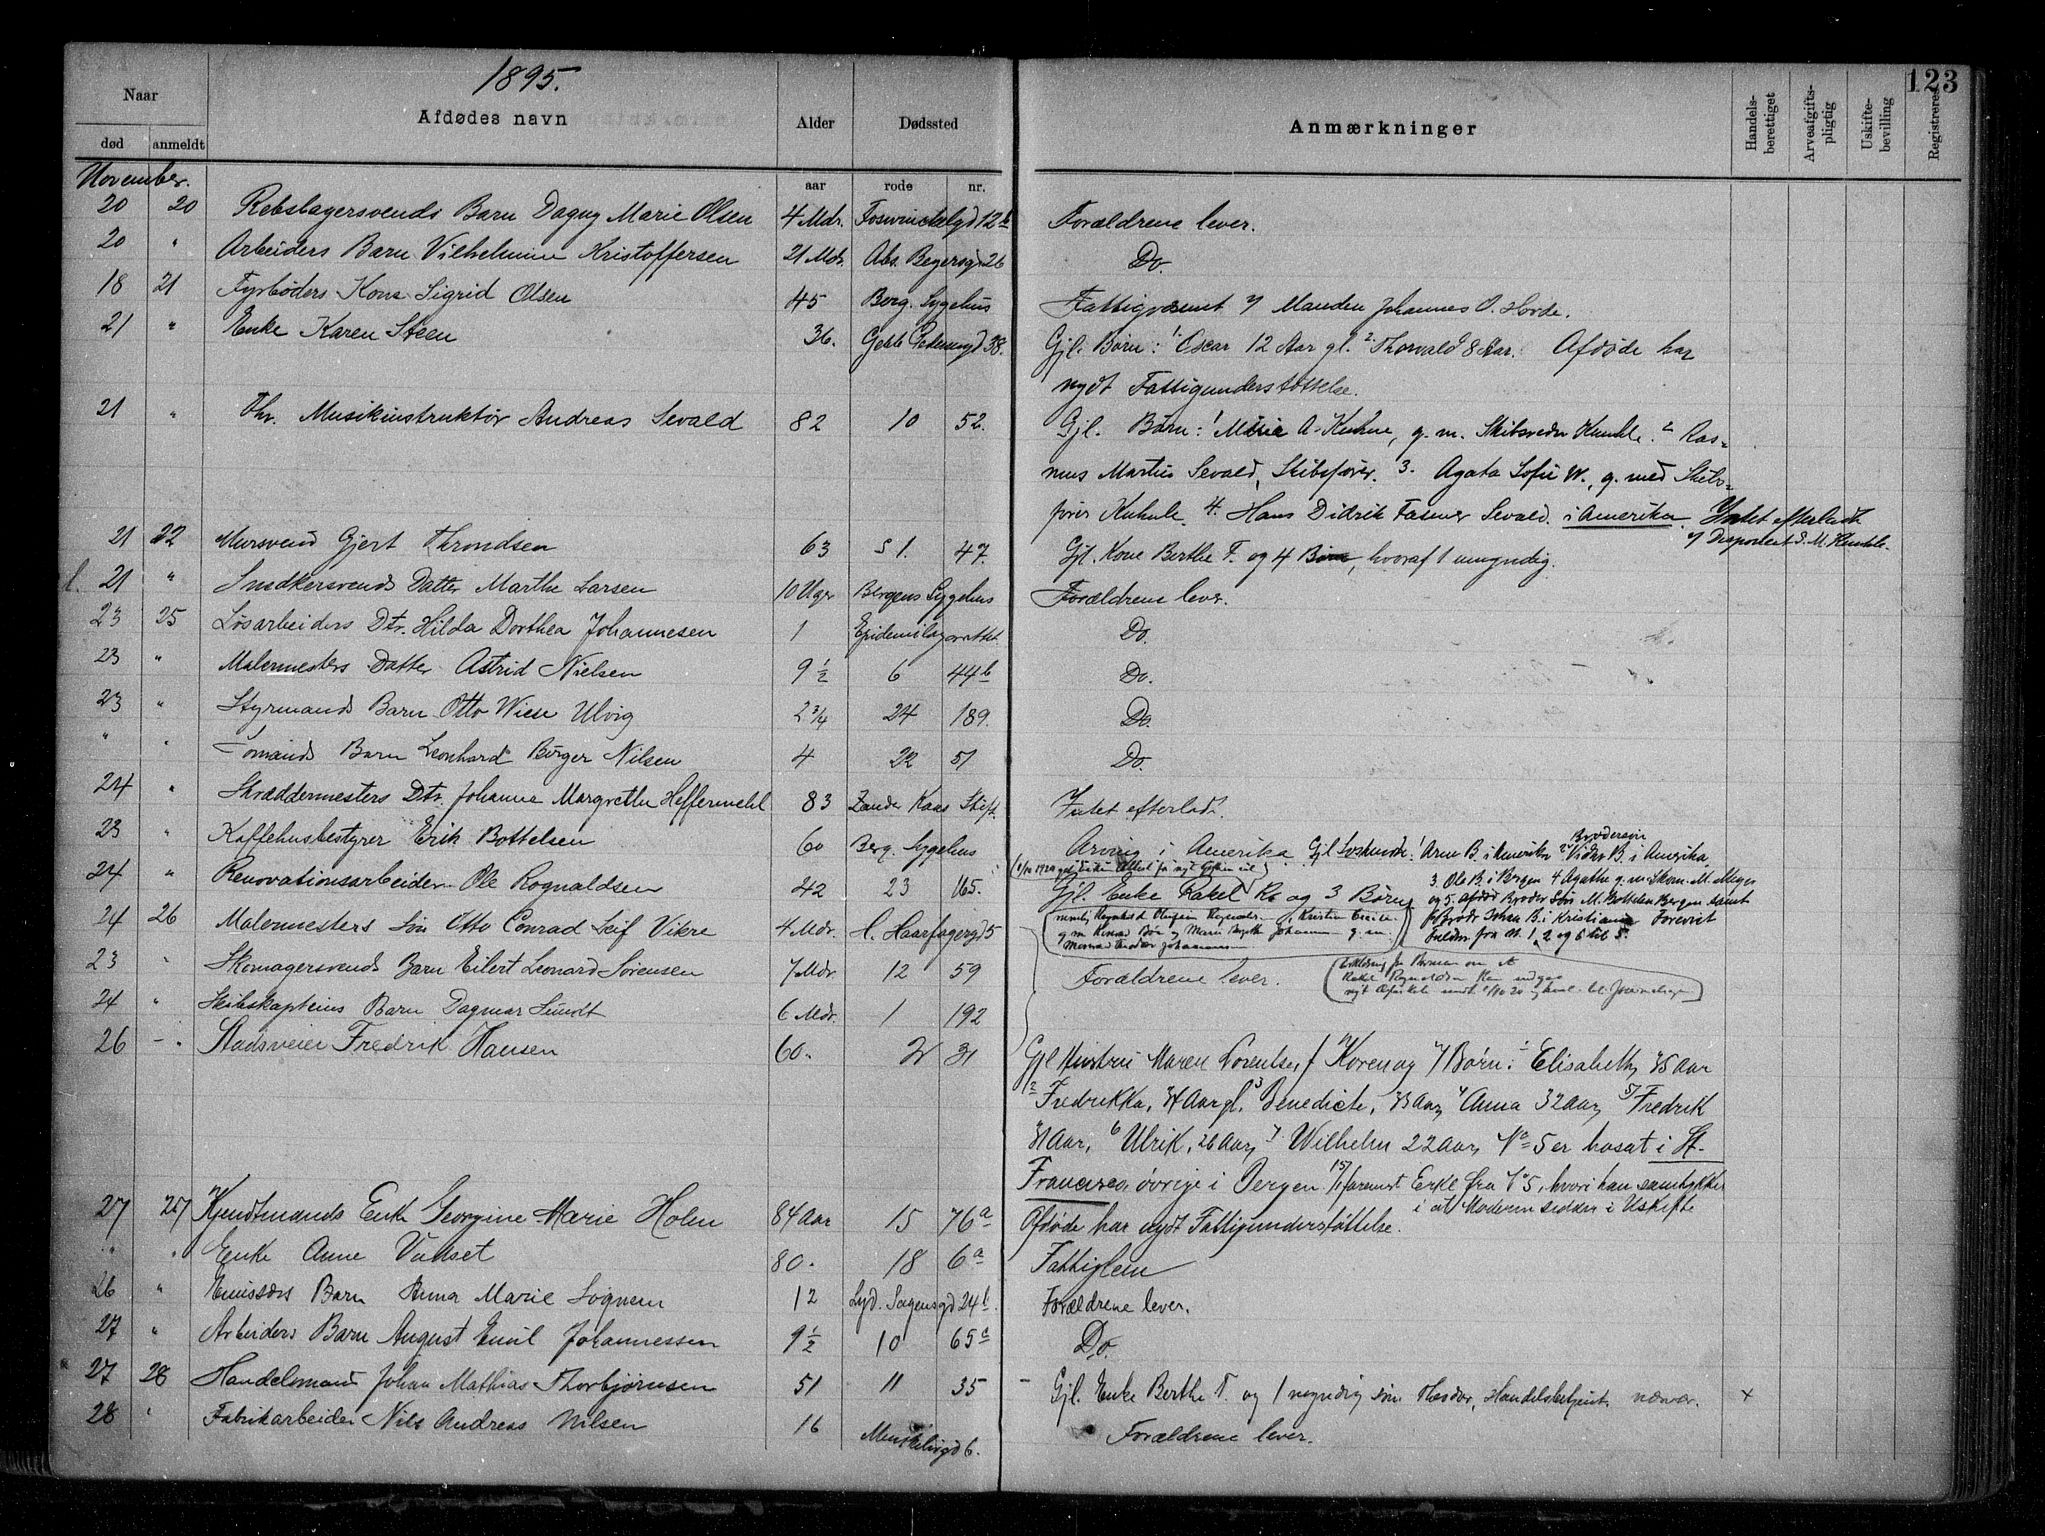 1895.
123
Naar
Afdødes navn
Alder
Dødssted
Anmærkninger
Handels-berettiget
Arveafgifts-pligtig
Uskifte-bevilling
Registreres
død anmeldt
aar rode nr.
November.
20 20 Rebslagersvends Barn Dagny Marie Olsen 4 Mdr. 12b Forældrene lever.
20 " Arbeiders Barn Vilhelmine Kristoffersen 21 Mdr. Abs. Beyersgd 26 Do.
18 21 Fyrbøders Kone Sigrid Olsen 45 Berg. Sygehus Fattigvæsnet v/ Manden Johannes O. Hovde.
21 " Enke Karen Steen 36. Gjert Pedersensgd 38. Gjl. Børn: 1 Oscar 12 Aar gl. 2 Thorvald 8 Aar. Afdøde har
nydt Fattigunderstøttelse.
21 " Fhv. Musikinstruktør Andreas Sevald 82 10 52. Gjl. Børn: 1 Marie A. Kuhnle, g. m. Skibsreder Kuhnle. 2 Ras-
mus Martin Sevald, Skibsfører. 3. Agata Sofie W., g. med Skibs-
fører Kuhnle 4. Hans Didrik Fasmer Sevald. i Amerika. Intet efterladt
v/ Disponent S. M. Kuhnle.
21 22 Mursvend Gjert Throndsen 63 S 1. 47. Gjl. Kone Berthe T. og 4 Børn, hvoraf 1 umyndig.
21 " Snedkersvends Datter Marthe Larsen 10 Uger Bergens Sygehus Forældrene lever.
23 25 Løsarbeiders Dtr. Hilda Dorthea Johannesen 1 Epidemilazarettet. Do.
23 " Malermesters Datter Astrid Nielsen 9 1/2 6 44b Do.
23 " Styrmands Barn Otto Wiese Ulvig 2 3/4 24 189. Do.
" " Sømands Barn Leonhard Birger Nilsen 4 22 51 Do.
24 " Skræddermesters Dtr. Johanne Margrethe Heffermehl 83 Zander Kaas Stift. Intet efterladt.
23 " Kaffehusbestyrer Erik Bottelsen 60 Berg. Sygehus Arving i Amerika. Gjl. Søskende: 1 Arne B. i Amerika 2 Brodersøn Vider B. i Amerika
3. Ole B. i Bergen 4 Agathe g. m. Skom. M. Meyer
24 " Renovationsarbeider Ole Rognaldsen 42 23 165. Gjl. Enke Rakel R. og 3 Børn
og 5. Afdød Broder Søn M. Bottelsen Bergen samt
Broder Johan B. i Kristiania
24 26 Malermesters Søn Otto Conrad Leif Vikre 4 Mdr. H. Haarfagergd 5
23 " Skomagersvends Barn Eilert Leonard Sørensen 7 Mdr. 12 59 Forældrene lever.
24 " Skibskapteins Barn Dagmar Sundt 6 Mdr. 1 192
26 " Stadsveier Fredrik Hansen 60. 2 31 Gjl Hustru Maren Lorentse f. Koren og 7 Børn: 1 Elisabeth, 35 Aar
2 Fredrikka, 34 Aar gl. 3 Benedicte, 33 Aar, 4 Anna 32 Aar, 5 Fredrik
31 Aar, 6 Ulrik, 26 Aar, 7 Wilhelm 22 Aar, No 5 er bosat i St.
Francisco, øvrige i Bergen. fraremst Erkl. fra No 5, hvori han samtykker
i at Moderen sidder i Uskifte
27 27 Kjendtmands Enke Georgine Marie Holm 84 Aar 15 76a Afdøde har nydt Fattigunderstøttelse.
" " Enke Anne Vadset 80. 18 6a Fattiglem
26 " Emissærs Barn Anna Marie Sognem 12 Lyd. Sagensgd 24b. Forældrene lever.
27 " Arbeiders Barn August Emil Johannessen 9 1/2 10 65a Do.
27 28 Handelsmand Johan Mathias Thorbjørnsen 51 11 35 Gjl. Enke Berthe T. og 1 myndig søn Theodor, Handelsbetjent, nærvær. x
28 " Fabrikarbeider Nils Andreas Nilsen 16 6. Forældrene lever.